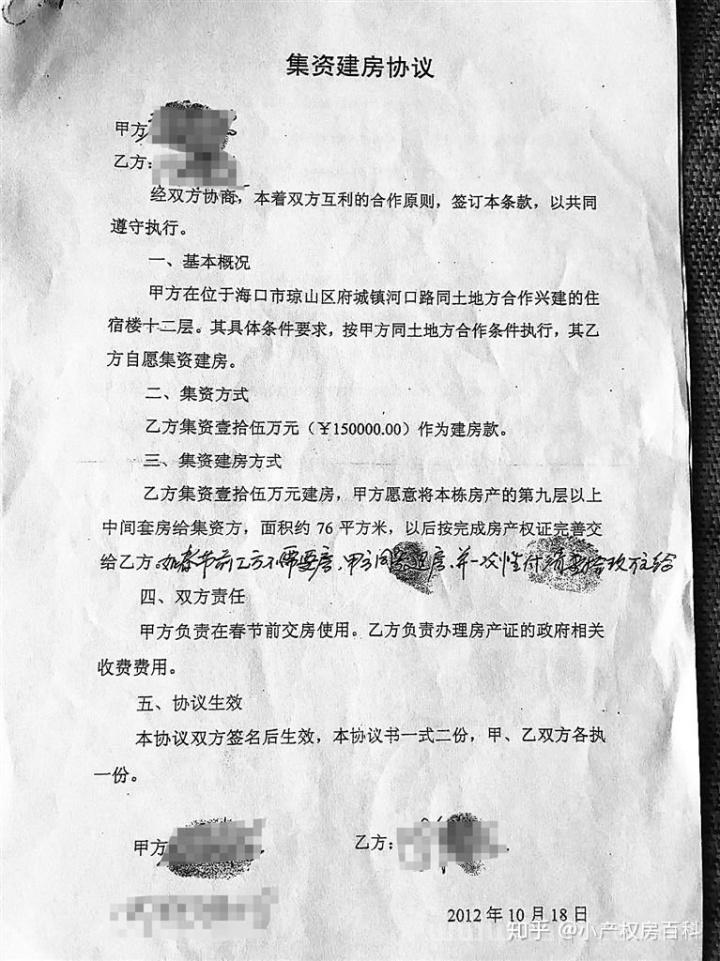 集资建房协议
甲方
乙方:
经双方协商,本着双方互利的合作原则,签订本条款,以共同
遵守执行。
一、基本概况
甲方在位于海口市琼山区府城镇河口路同土地方合作兴建的住
宿楼十二层。其具体条件要求,按甲方同土地方合作条件执行,其乙
方自愿集资建房。
二、集资方式
乙方集资壹拾伍万元(¥150000.00)作为建房款。
三、集资建房方式
乙方集资壹拾伍万元建房,甲方愿意将本栋房产的第九层以上
中间套房给集资方,面积约 76 平方米,以后按完成房产权证完善交
给乙方。如春节前乙方不需要房,甲方同意退房,并一次性付清壹拾玖万给
四、双方责任
甲方负责在春节前交房使用。乙方负责办理房产证的政府相关
收费费用。
五、协议生效
本协议双方签名后生效,本协议书一式二份,甲、乙双方各执
一份。
甲方
乙方:
2012 年 10 月 18 日
知乎 @小产权房百科